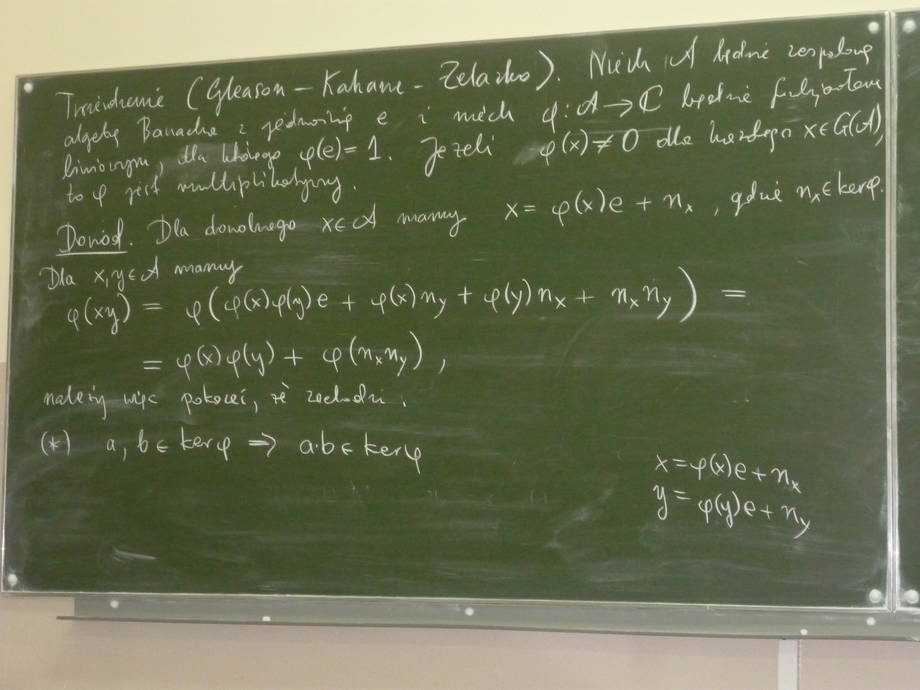 Twierdzenie (Gleason – Kahane – Żelazko). Niech A będzie zespoloną
algebrą Banacha z jednością e i niech φ: A → ℂ będzie funkcjonałem
liniowym, dla którego φ(e) = 1. Jeżeli φ(x) ≠ 0 dla każdego x ∈ G(A),
to φ jest multiplikatywny.
Dowód. Dla dowolnego x ∈ A mamy x = φ(x)e + n_x, gdzie n_x ∈ kerφ.
Dla x, y ∈ A mamy
φ(xy) = φ(φ(x)φ(y)e + φ(x)n_y + φ(y)n_x + n_x n_y) =
= φ(x)φ(y) + φ(n_x n_y),
należy więc pokazać, że zachodzi:
(*) a, b ∈ kerφ ⇒ a·b ∈ kerφ
x = φ(x)e + n_x
y = φ(y)e + n_y